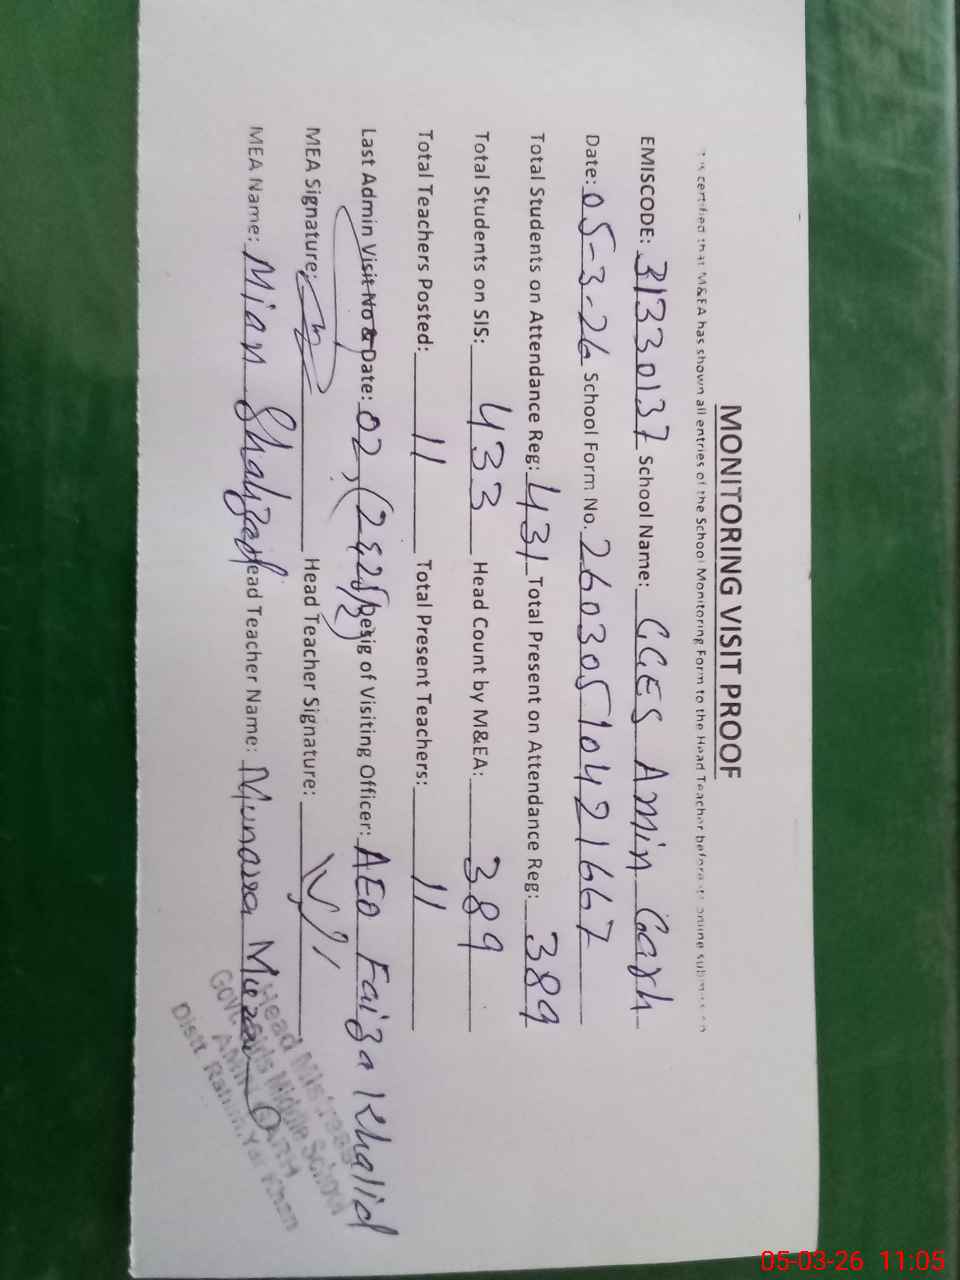 MONITORING VISIT PROOF
It is certified that M&EA has shown all entries of the School Monitoring Form to the Head Teacher before its online submission
EMISCODE: 31330137 School Name: GGES Amin Garh
Date: 05-3-26 School Form No. 26030510421667
Total Students on Attendance Reg: 431 Total Present on Attendance Reg: 389
Total Students on SIS: 433 Head Count by M&EA: 389
Total Teachers Posted: 11 Total Present Teachers: 11
Last Admin Visit No & Date: 02, Desig of Visiting Officer: AEO Faiza Khalid
MEA Signature: Head Teacher Signature:
MEA Name: Mian Shahzad Head Teacher Name: Munawar
Head Mistress
Govt. Girls Middle School
AMIN GARH
Distt. Rahim Yar Khan
05-03-26 11:05